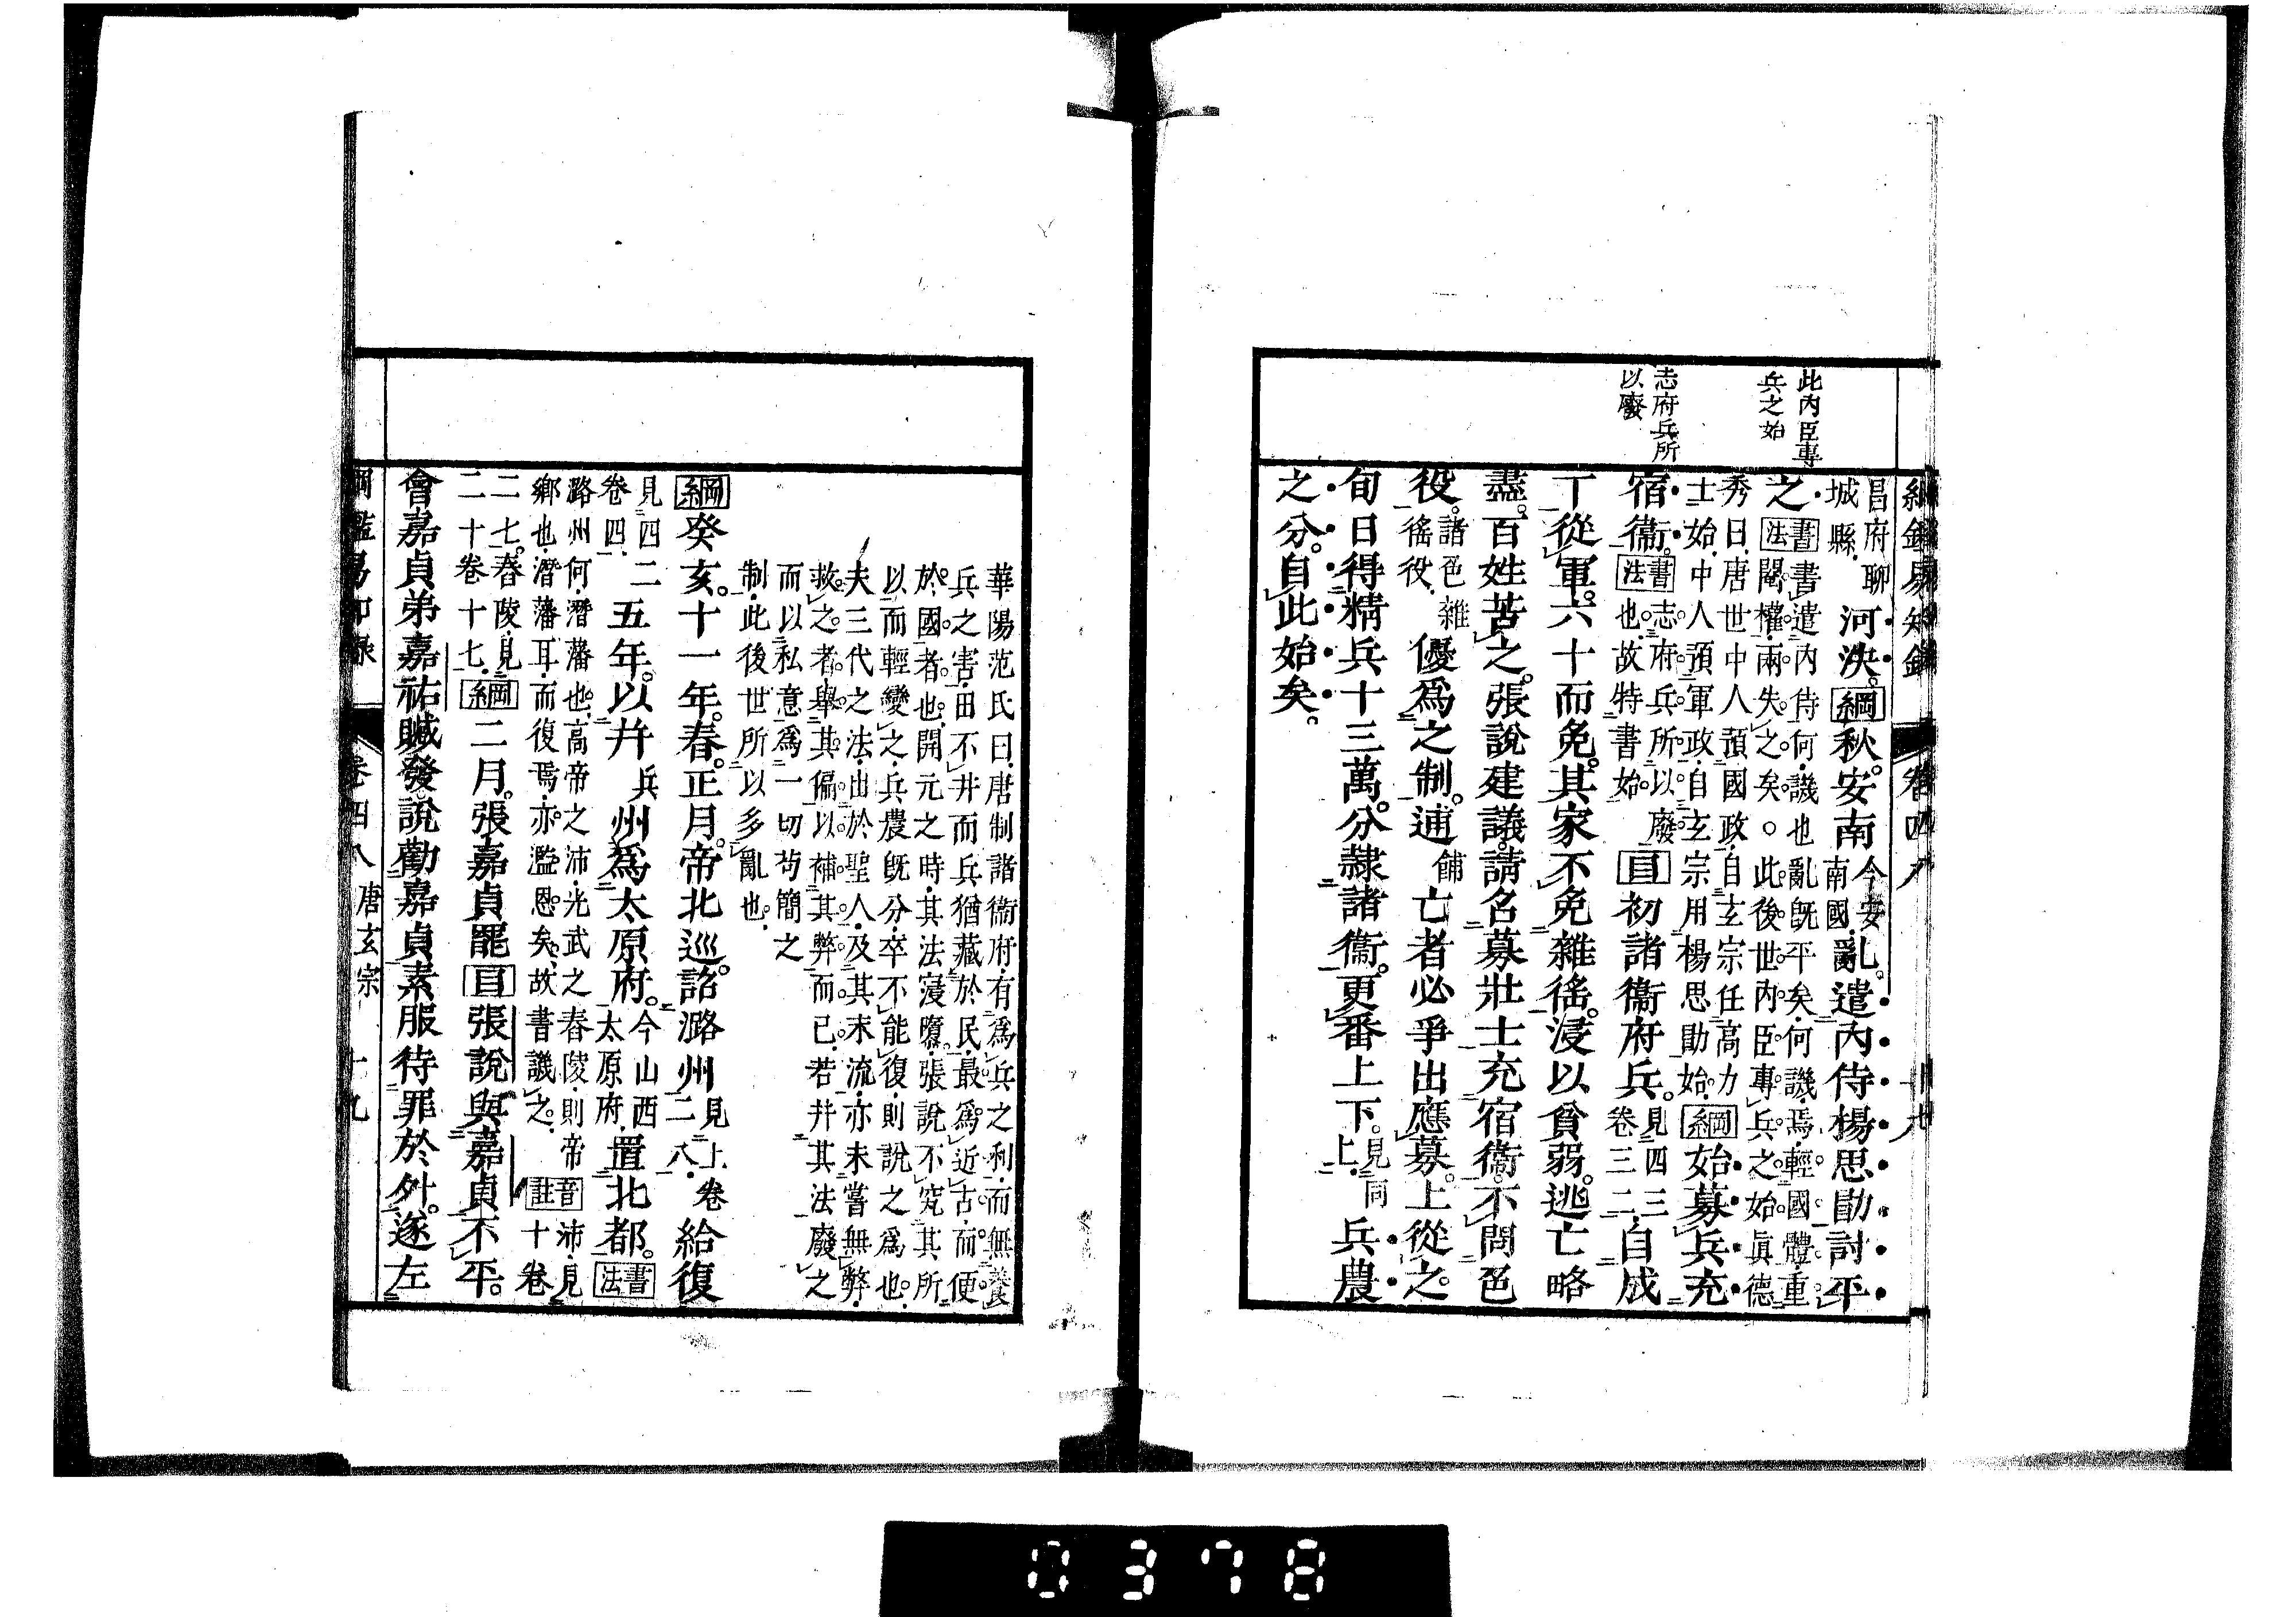 綱鑑易知錄 卷四八
此內臣專
兵之始
志府兵所
以廢
昌府聊
城縣
河決。綱秋。安南
今安
南國
亂。遣內侍楊思勖討平
之。書法
書遣內侍何譏也亂既平矣何譏焉輕國體重
閹權兩失之矣○此後世內臣專兵之始眞德
秀曰唐世中人預國政自玄宗任高力
士始中人預軍政自玄宗用楊思勖始
綱始募兵充
宿衞。書法
志府兵所以廢
也故特書始
目初諸衞府兵。
見四三
卷三二
自成
丁從軍。六十而免。其家不免雜徭。浸以貧弱。逃亡略
盡。百姓苦之。張說建議。請召募壯士充宿衞。不問色
役。
諸色雜
徭役
優爲之制。逋
餔
亡者必爭出應募。上從之。
旬日得精兵十三萬。分隸諸衞。更番上下。
見同
上
兵農
之分。自此始矣。
華陽范氏曰唐制諸衞府有爲兵之利而無養
兵之害田不井而兵猶藏於民最爲近古而便
於國者也開元之時其法寖隳張說不究其所
以而輕變之兵農既分卒不能復則說之爲也
夫三代之法出於聖人及其末流亦未嘗無弊
救之者舉其偏以補其弊而已若井其法廢之
而以私意爲一切苟簡之
制此後世所以多亂也
綱癸亥。十一年。春。正月。帝北巡。詔潞州
見上卷
二八
給復
見四二
卷四
五年。以幷
兵
州爲太原府。
今山西
太原府
置北都。書法
潞州何潛藩也高帝之沛光武之春陵則帝
鄉也潛藩耳而復焉亦濫恩矣故書譏之
音註
沛見
十卷
二七春陵見
二十卷十七
綱二月。張嘉貞罷目張說與嘉貞不平。
會嘉貞弟嘉祐贓發說勸嘉貞素服待罪於外。遂左
綱鑑易知錄 卷四八 唐玄宗 十九
0378